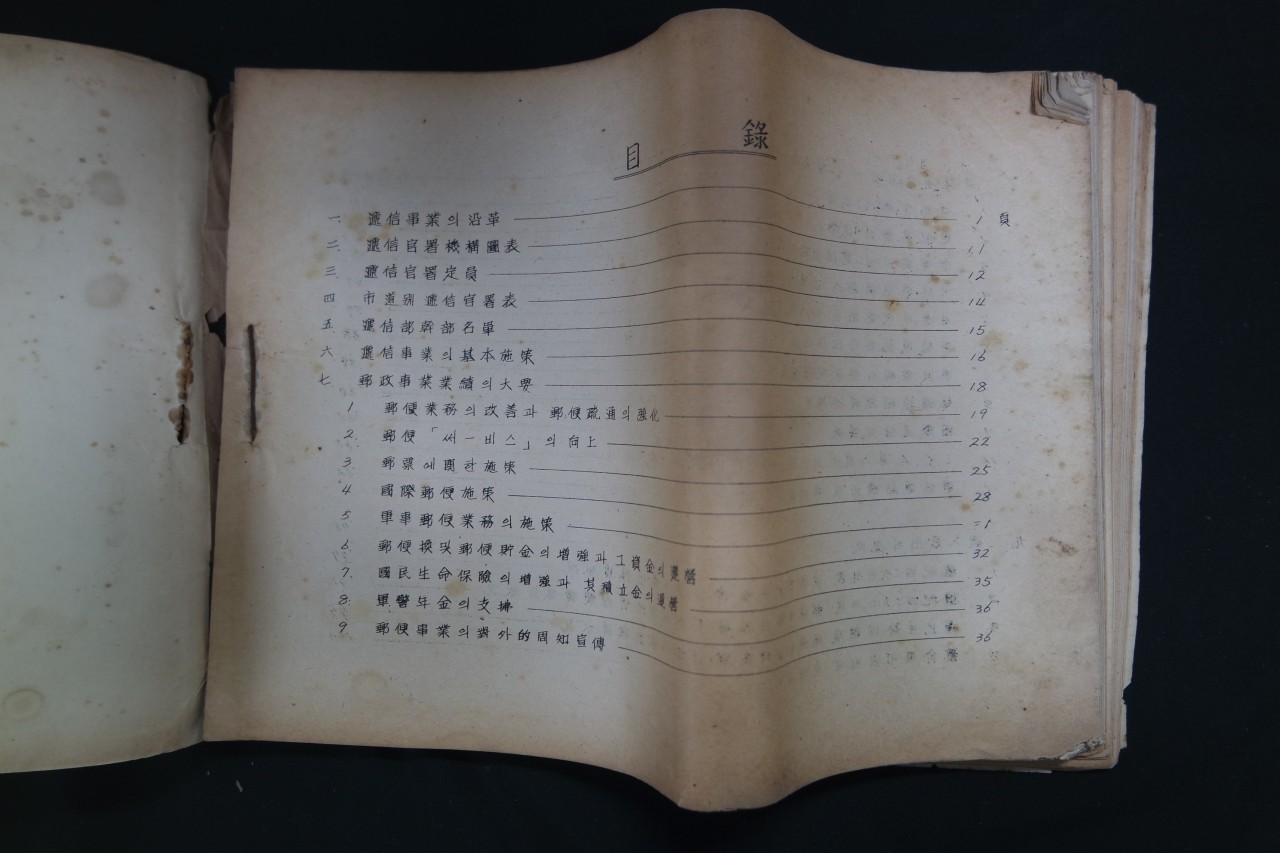 目 錄
一. 遞信事業의 沿革 1 頁
二. 遞信官署機構圖表 11
三. 遞信官署定員 12
四 市道別 遞信官署表 14
五. 遞信部幹部名單 15
六. 遞信事業의 基本施策 16
七 郵政事業業績의 大要 18
1 郵便業務의 改善과 郵便疏通의 强化 19
2. 郵便「써ー비스」의 向上 22
3. 郵票에 関한 施策 25
4 國際郵便施策 28
5 軍事郵便業務의 施策 1
6. 郵便換및 郵便貯金의 增强과 工資金의 運營 32
7. 國民生命保險의 增强과 其積立金의 運營 35
8. 軍警年金의 支拂 36
9 郵便事業의 對外的周知宣傳 36